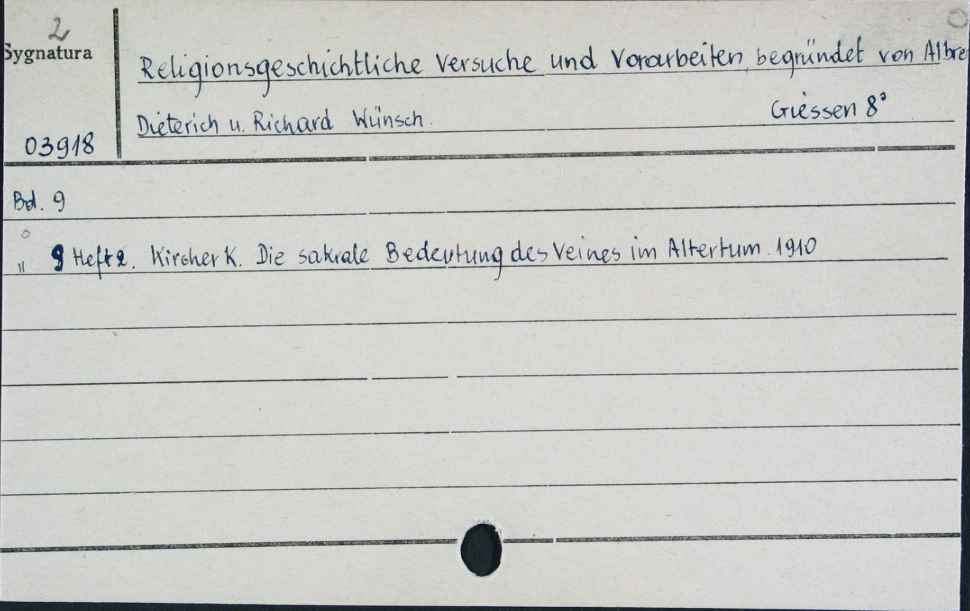 2
Sygnatura
03918
Religionsgeschichtliche Versuche und Vorarbeiten, begründet von Albre
Dieterich u. Richard Wünsch. Giessen 8°
Bd. 9
" 9 Heft 2. Kircher K. Die sakrale Bedeutung des Veines im Altertum. 1910